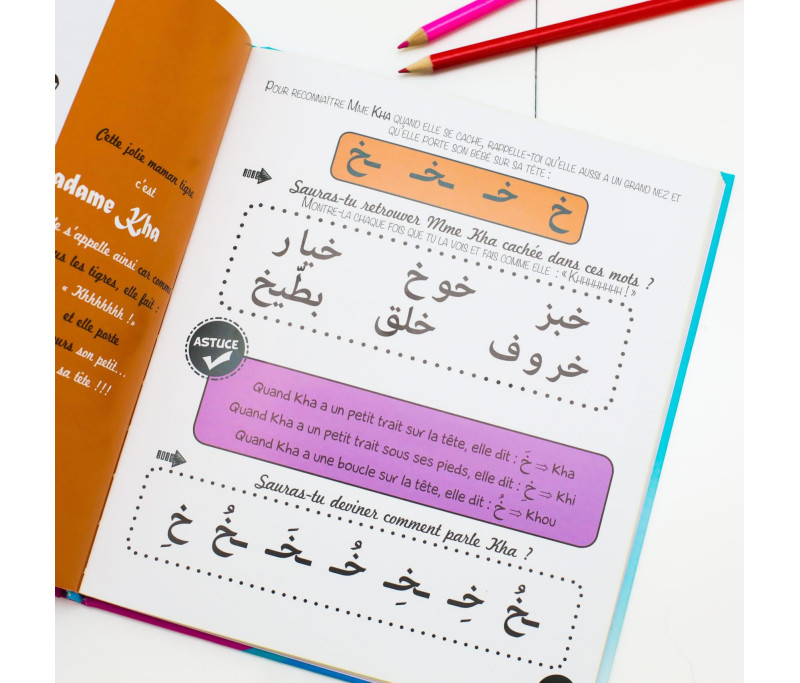 Cette jolie maman tigre
c'est
adame Kha
le s'appelle ainsi car comm
us les tigres, elle fait :
« Khhhhhhh ! »
et elle porte
urs son petit...
sa tête !!!
Pour reconnaître Mme Kha quand elle se cache, rappelle-toi qu'elle aussi a un grand nez et
qu'elle porte son bébé sur sa tête :
خ خـ ـخـ ـخ
Sauras-tu retrouver Mme Kha cachée dans ces mots ?
Montre-la chaque fois que tu la vois et fais comme elle : « Khhhhhhh ! »
خبز خوخ خيار
خروف خلق بطّيخ
ASTUCE
Quand Kha a un petit trait sur la tête, elle dit : خَ ⇒ Kha
Quand Kha a un petit trait sous ses pieds, elle dit : خِ ⇒ Khi
Quand Kha a une boucle sur la tête, elle dit : خُ ⇒ Khou
Sauras-tu deviner comment parle Kha ?
ـخُ خِـ ـخِـ خُـ ـخَـ ـخُ خِ